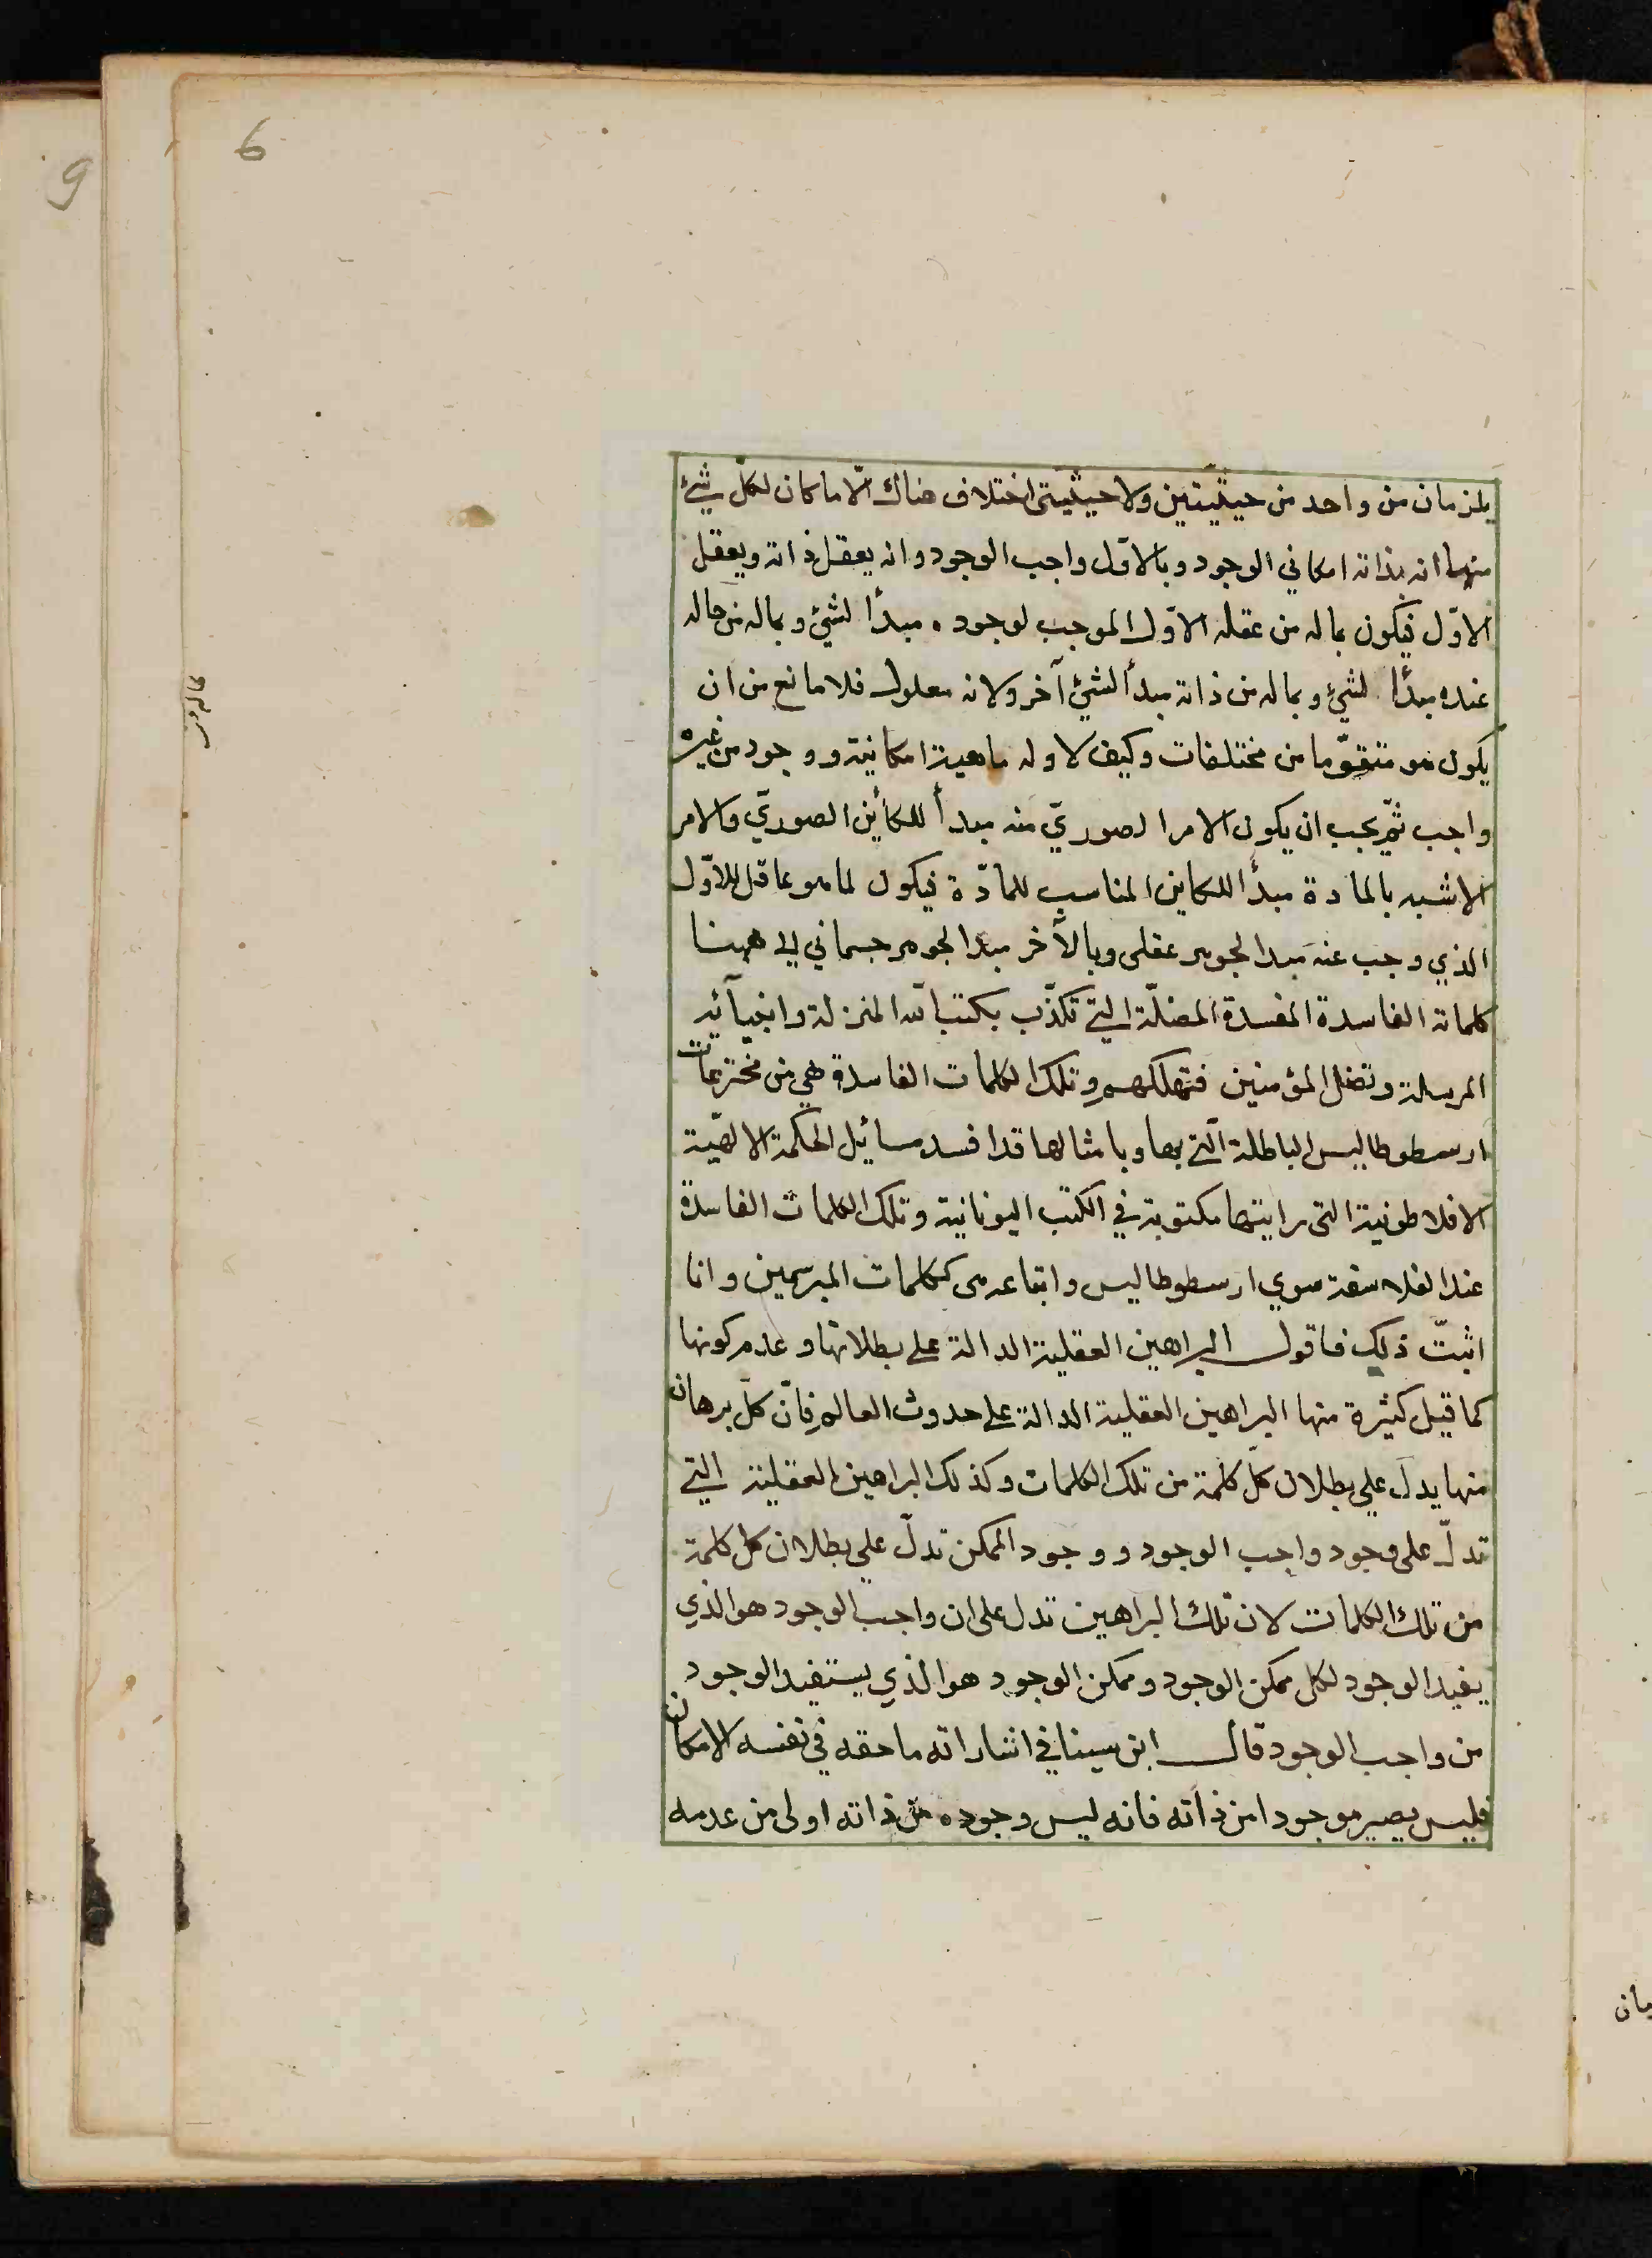 6
9
يلزمان من واحد من حيثيتين ولا حيثيتي اختلاف هناك الّا ما كان لكل شئ
منها انه بذاته امكاني الوجود وبالاوّل واجب الوجود وانه يعقل ذاته ويعقل
الاوّل فيكون بماله من عقله الاوّل الموجب لوجوده مبدأ لشئ وبماله من حاله
عنده مبدأ لشئ وبماله من ذاته مبدأ لشئ آخر ولانه معلول فلا مانع من ان
يكون هو متقوّما من مختلفات وكيف لا وله ماهية امكانية ووجود من غيره
واجب ثمّ يجب ان يكون الامر الصوريّ منه مبدأ للكائن الصوريّ والامر
الاشبه بالمادة مبدأ للكاين المناسب للمادّة فيكون لما هو عاقل للاوّل
الذي وجب عنه مبدا لجوهر عقلى وبالآخر مبدا لجوهر جسماني الى ههنا
كلماته الفاسدة المفسدة المضلّة التي تكذّب بكتب الله المنزلة وانبيائه
المرسلة وتضل المؤمنين فتهلكهم وتلك الكلمات الفاسدة هي من مخترعات
ارسطوطاليس الباطلة الّتي بها وبامثالها قد افسد مسائيل الحكمة الالهيّة
الافلاطونية التى رايتها مكتوبة في الكتب اليونانية وتلك الكلمات الفاسدة
عند الفلاسفة سوي ارسطوطاليس واتباعه هى ككلمات المبرسمين وانا
اثبتّ ذلك فاقول البراهين العقلية الدالة على بطلانها وعدم كونها
كما قيل كثيرة منها البراهين العقلية الدالة على حدوث العالم فانّ كلّ برهان
منها يدل علي بطلان كلّ كلمة من تلك الكلمات وكذلك البراهين العقلية التي
تدلّ على وجود واجب الوجود ووجود الممكن تدلّ علي بطلان كل كلمة
من تلك الكلمات لان تلك البراهين تدل على ان واجب الوجود هو الذي
يفيد الوجود لكل ممكن الوجود وممكن الوجود هو الذي يستفيد الوجود
من واجب الوجود قال ابن سينا في اشاراته ما حقه في نفسه الامكان
فليس يصير موجودا من ذاته فانه ليس وجوده من ذاته اولى من عدمه